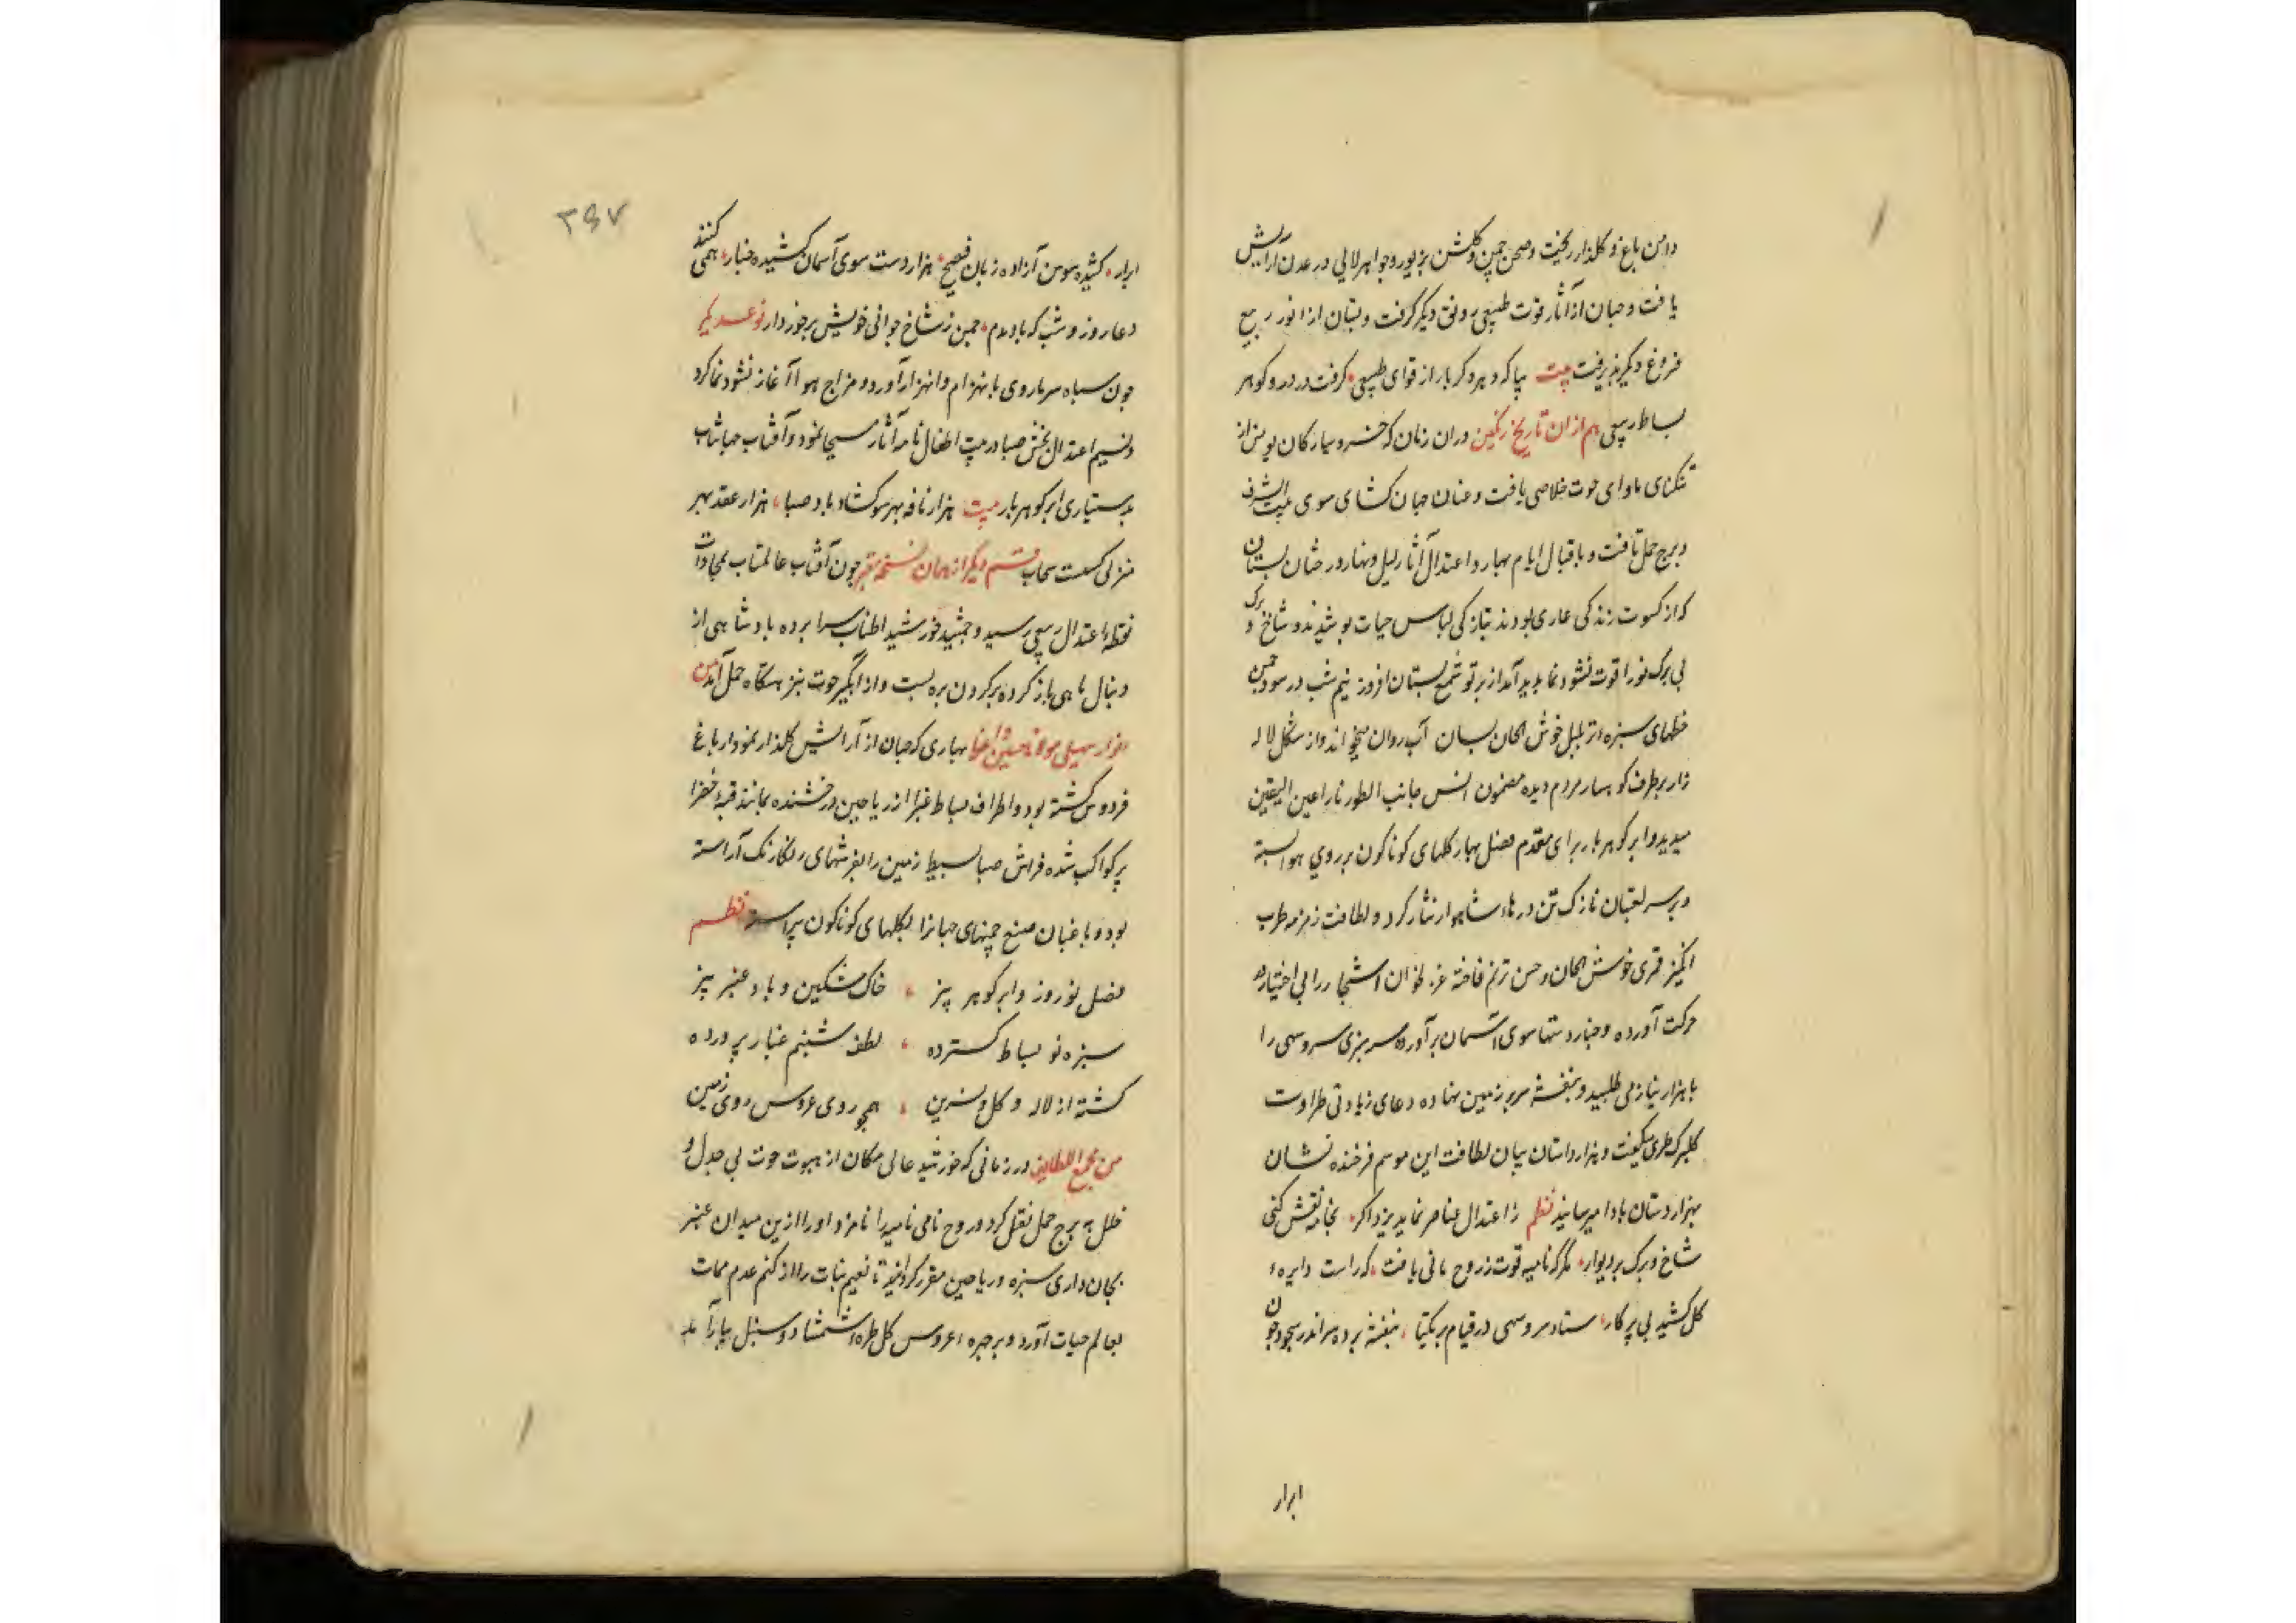 دامن باغ و کلذار ریخت و صحن چمن و کلشن بزیور و جواهر لالی در عدن آرایش
یافت و جهان از آثار قوت طبیعی رونق دیکر کرفت و بستان از انور ربیع
فروغ دیکر پذیرفت بیت بیا که دهر دکر بار از قوای طبیعی کرفت در در و کوهر
بساط ربیعی هم از ان تاریخ رنکین در ان زمان که خسرو سیارکان یویش از
تنکنای ماوای حوت خلاصی یافت و عنان جهان کشای سوی بیت الشرف
و برج حمل تافت و باقبال ایام بهار و اعتدال آثار لیل و نهار درختان بستان
که از کسوت زندکی عاری بودند بتازکی لباس حیات پوشیدند و شاخ و برک
بی برک نو را قوت نشو و نما پدید آمد از پرتو شمع بستان افروز نیم شب در سود چمن
خطهای سبزه تر بلبل خوش الحان بسان آب روان میخواند و از شکل لاله
زار بر طرف کوهسار مردم دیده مضمون آنس من جانب الطور نارا عین الیقین
میدید و ابر کوهربار برای مقدم فصل بهار کلهای کوناکون بر روی هوا بسته
و بر سر لعبتان نازک تن درهاء شاهوار نثار کرد و لطافت زمزمه طرب
انکیز قمری خوش الحان و حسن ترنم فاخته غزلخوان اشجار را بی اختیار در
حرکت آورده و چنار دستها سوی آسمان برآورده سرسبزی سرو سهی را
با هزار نیاز می طلبید و بنفشه سر بر زمین نهاده دعای زیادتی طراوت
کلبرک طری میکفت و هزار داستان بیان لطافت این موسم فرخنده نشان
بهزار دستان بادا میرسانید نظم ز اعتدال عناصر نماید یزد اکر بخامه نقش کنی
شاخ و برک بر دیوار مکر که نامیه قوت ز روح مانی یافت که راست دایره ء
کل کشید بی پرکار ستاد سرو سهی در قیام بر یکتا بنفشه برده سر اندر سجود چون
ابرار
۳۶۷
ابرار کشیده سوسن آزاده زبان فصیح هزار دست سوی آسمان کشیده چنار همی کنند
دعا روز و شب که باد مدام چمن ز شاخ جوانی خویش برخوردار نوع دیکر
چون سپاه سرما روی بانهزام و انهزار آورد و مزاج هوا آغاز نشو و نما کرد
و نسیم اعتدال بخش صبا در مهد اطفال نامه آثار مسیحا نمود و آفتاب جهانتاب
بدستیاری ابر کوهربار بیت هزار نافه بهر سو کشاد باد صبا هزار عقد بهر
منزلی کسست سحاب قسم دیکر از همان نسخه معتبر چون آفتاب عالمتاب بمحاذات
نقطه اعتدال ربیعی رسید و جمشید خورشید اطناب سرا پرده پادشاهی از
دنبال ماهی باز کرده بر کردن بره بست و از آبکیر حوت بنزهتکاه حمل آمد من
انوار سهیلی مولانا حسین واعظ بهاری که جهان از آرایش کلذار نمودار باغ
فردوس کشته بود و اطراف بساط غبرا از ریاحین درخشنده بمانند قبه خضرا
پر کواکب شده فراش صبا بسیط زمین را بفرشهای رنکارنک آراسته
بود و باغبان صنع چمنهای جهانرا بکلهای کوناکون پیراسته نظم
فصل نوروز و ابر کوهر ریز خاک مشکین و باد عنبر بیز
سبزه نو بساط کسترده لطف شبنم غبار پرورده
کشته از لاله و کل و نسرین همچو روی عروس روی زمین
من مجمع اللطایف در زمانی که خورشید عالی مکان از بیوت حوت بی جدل و
خلل به برج حمل نقل کرد و روح نامی نامیه را نامزد او را ازین میدان عنبر
بجان داری سبزه و ریاحین مقرر کردانید تا نعیم نبات را از کتم عدم ممات
بعالم حیات آورد و بر چهره ء عروس کل طره ء شمشاد و سنبل بیارآمد